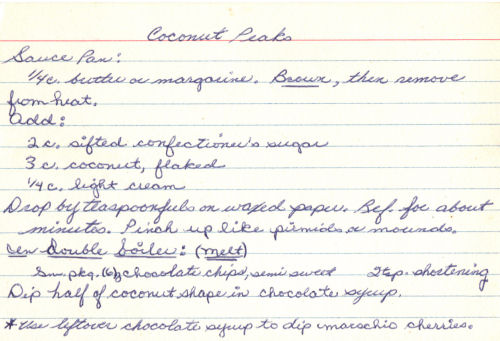 Coconut Peaks
Sauce Pan:
1/4 c. butter or margarine. Brown, then remove
from heat.
Add:
2 c. sifted confectioner's sugar
3 c. coconut, flaked
1/4 c. light cream
Drop by teaspoonfuls on waxed paper. Ref. for about
minutes. Pinch up like pirmids or mounds.
In Double Boiler: (melt)
Sm. pkg. (6) chocolate chips, semi sweet 2 tsp. shortening
Dip half of coconut shape in chocolate syrup.
*Use leftover chocolate syrup to dip marschio cherries.